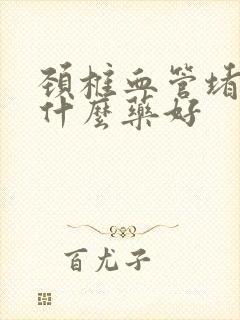 颈椎血管堵
什麼藥好
百尤子